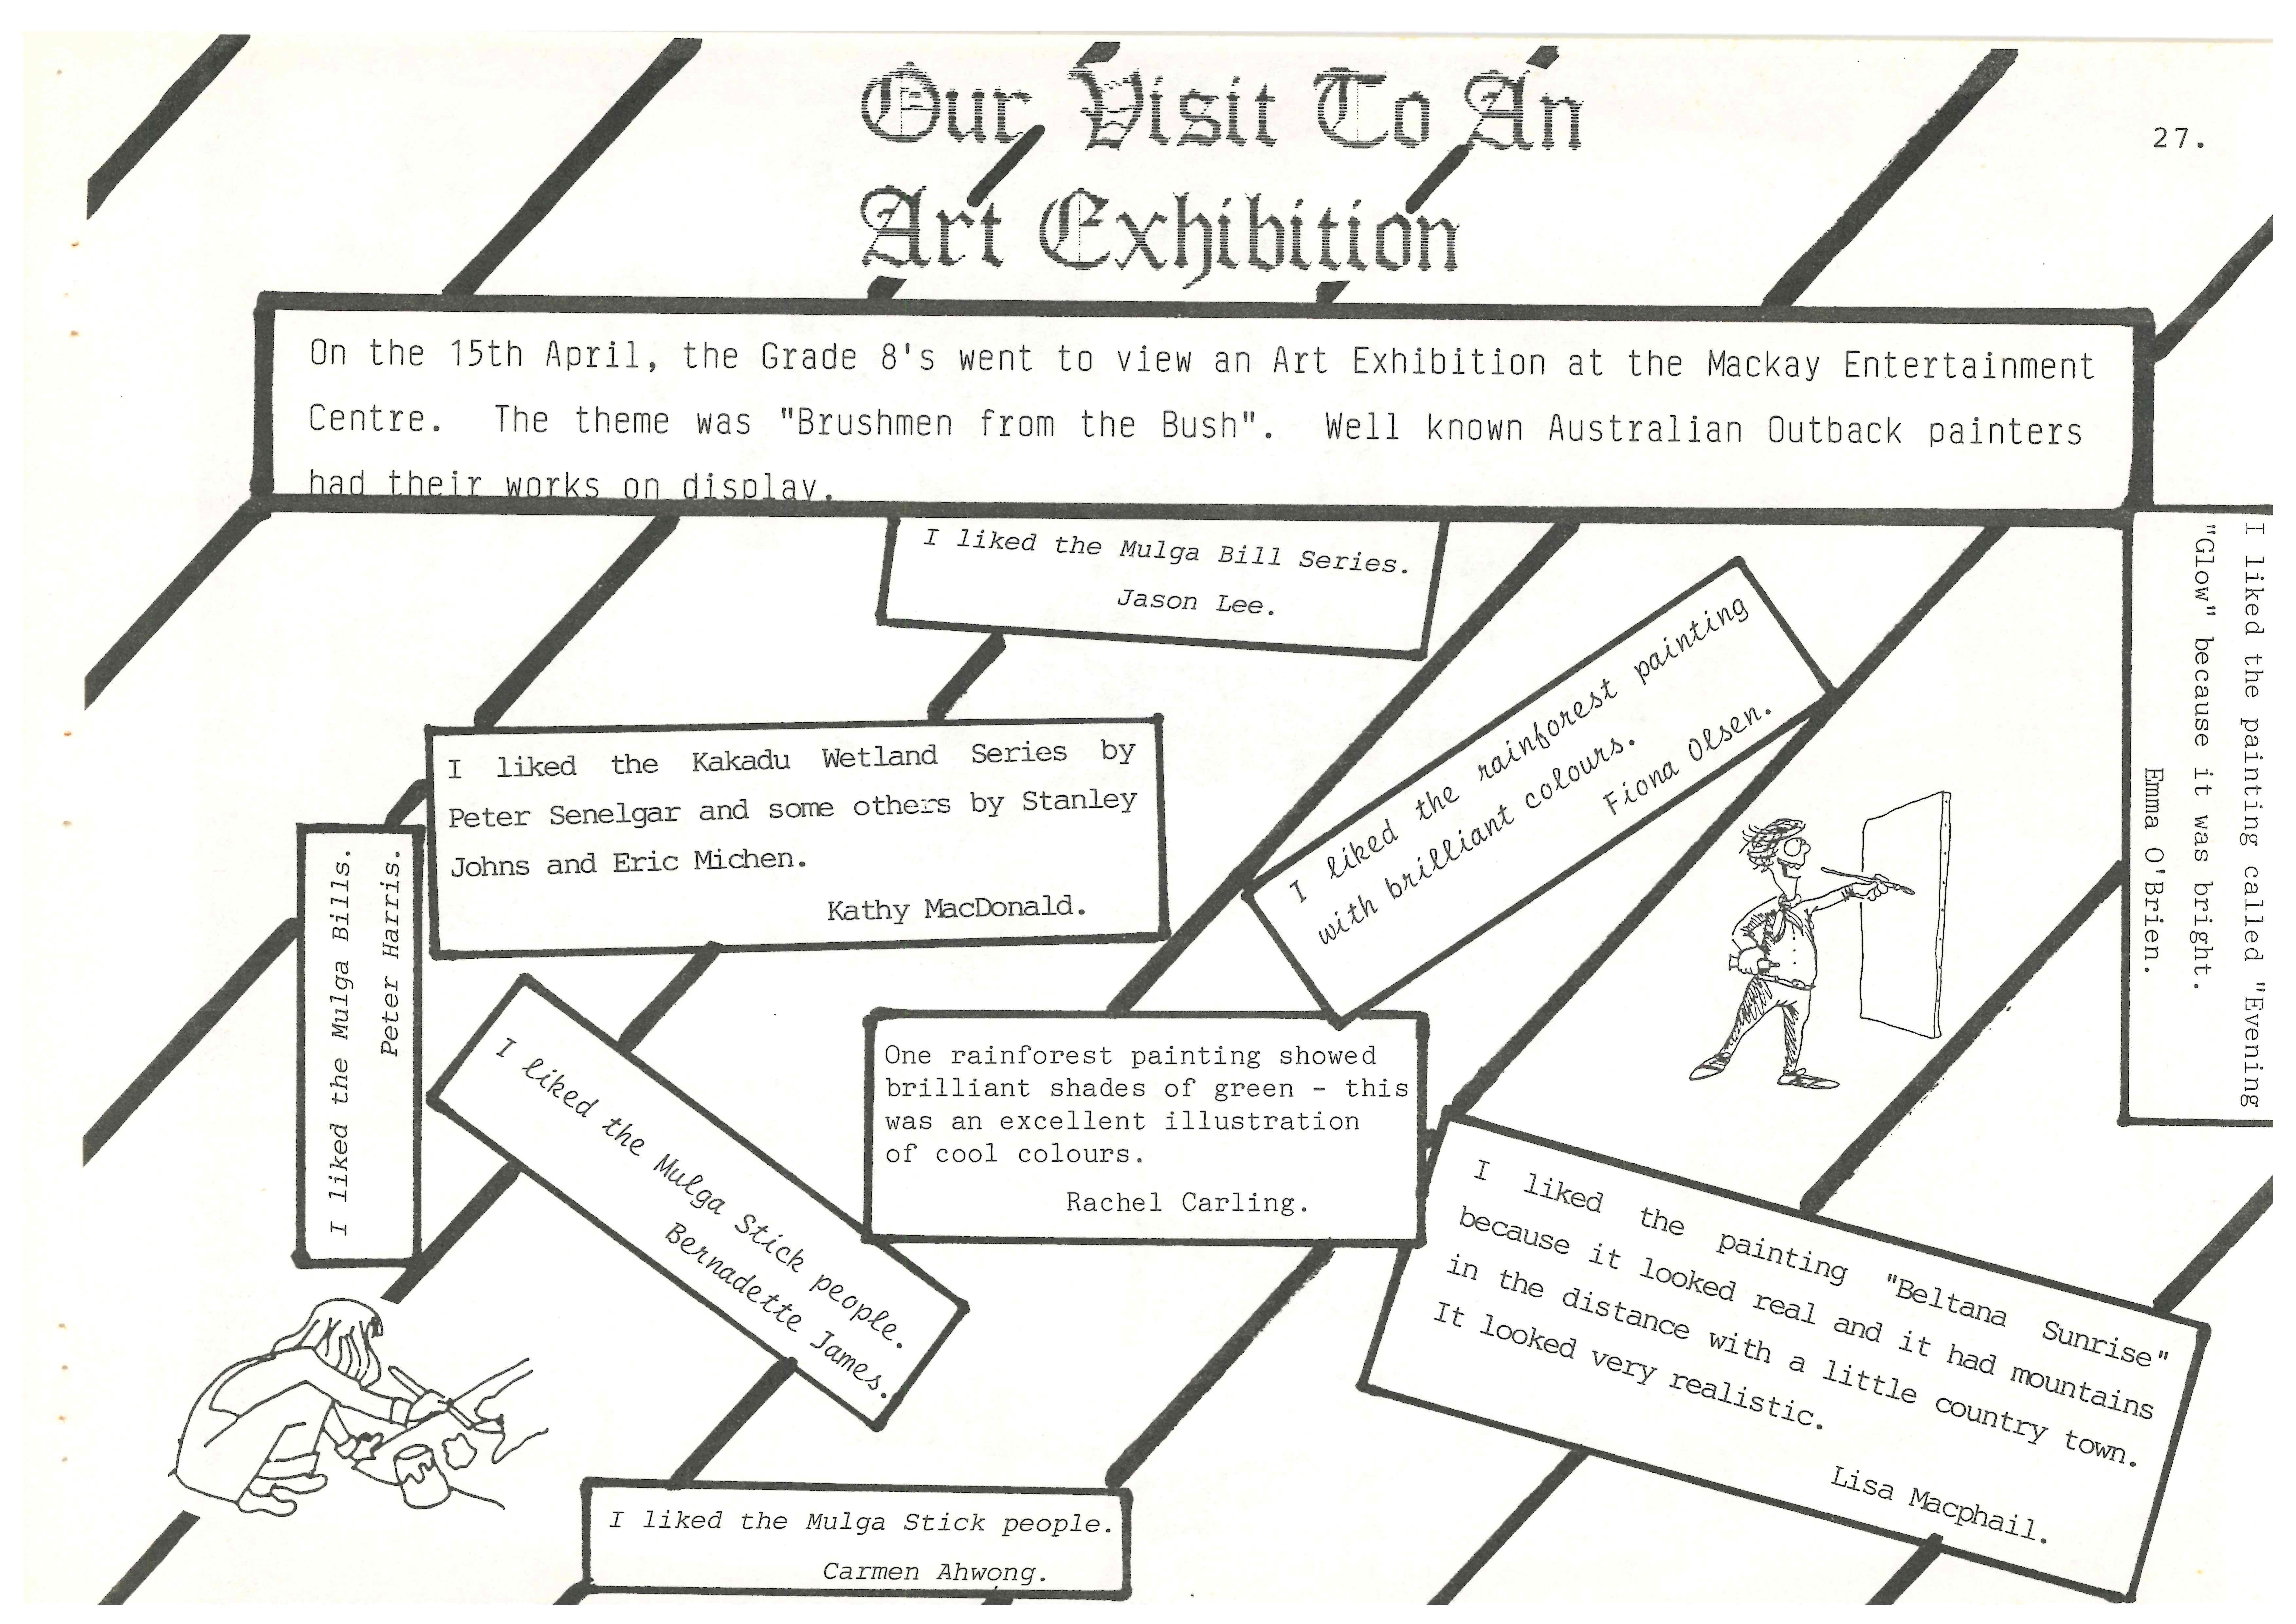 Our Visit To An
Art Exhibition
27.
On the 15th April, the Grade 8's went to view an Art Exhibition at the Mackay Entertainment
Centre. The theme was "Brushmen from the Bush". Well known Australian Outback painters
had their works on display.
I liked the Mulga Bill Series.
Jason Lee.
I liked the painting called "Evening
"Glow" because it was bright.
Emma O'Brien.
I liked the rainforest painting
with brilliant colours.
Fiona Olsen.
I liked the Kakadu Wetland Series by
Peter Senelgar and some others by Stanley
Johns and Eric Michen.
Kathy MacDonald.
I liked the Mulga Bills.
Peter Harris.
I liked the Mulga Stick people.
Bernadette James.
One rainforest painting showed
brilliant shades of green - this
was an excellent illustration
of cool colours.
Rachel Carling.
I liked the painting "Beltana Sunrise"
because it looked real and it had mountains
in the distance with a little country town.
It looked very realistic.
Lisa Macphail.
I liked the Mulga Stick people.
Carmen Ahwong.